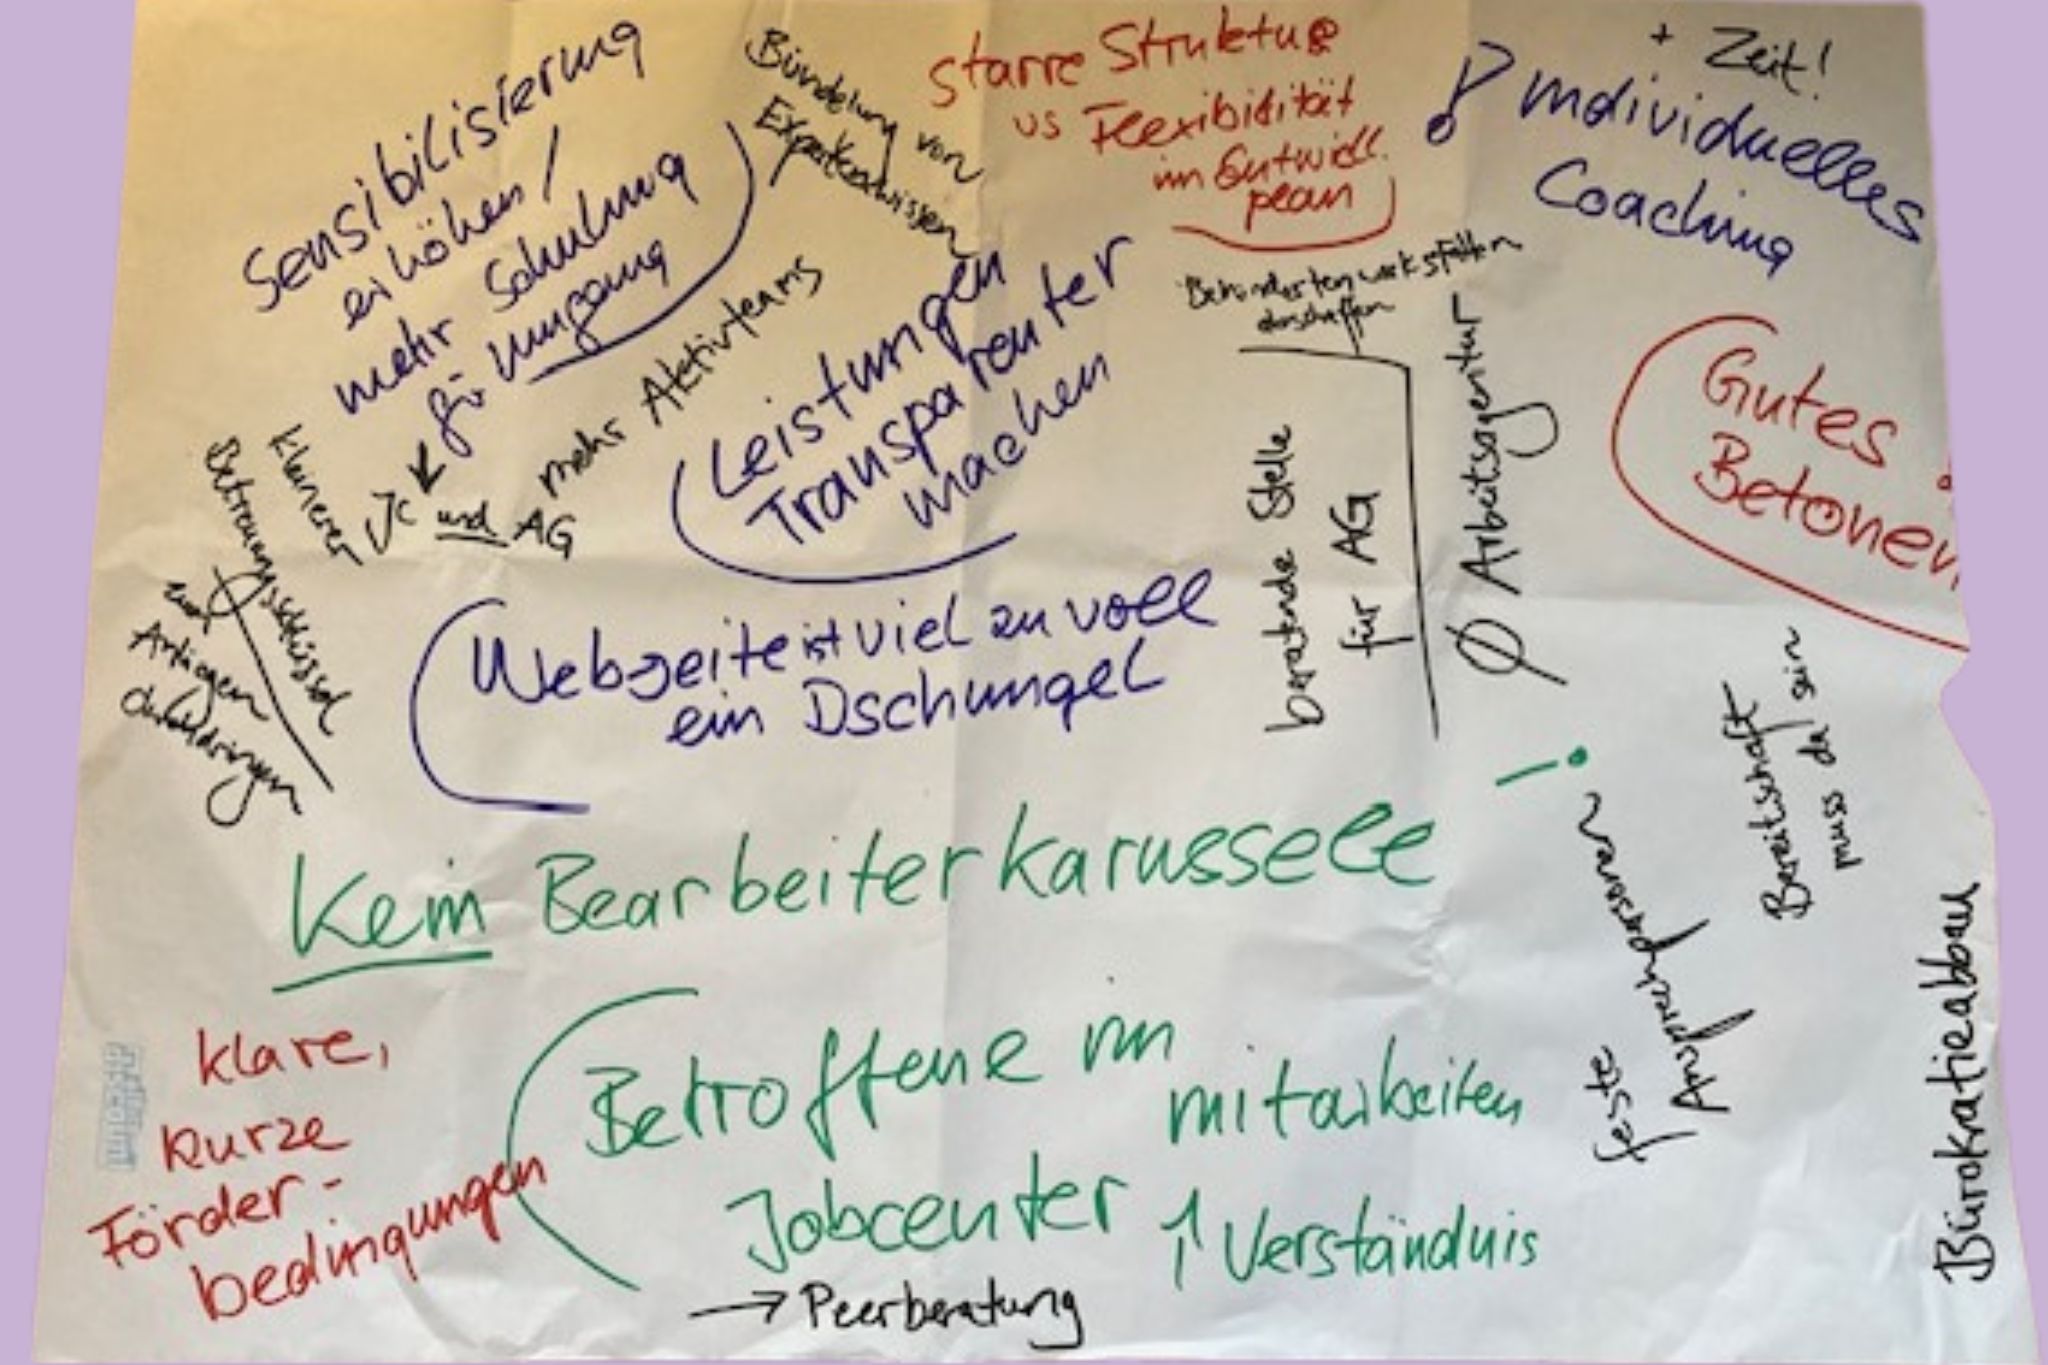 Sensibilisierung
erhöhen /
mehr Schulung
für Umgang
JC und AG
Bündelung von
Expertenwissen
starre Struktur
vs Flexibilität
im Entwickl.
plan
+ Zeit!
! Individuelles
Coaching
mehr Aktivteams
Leistungen
Transparenter
machen
Behindertenwerkstätten
abschaffen
beratende Stelle
für AG
Ø Arbeitsagentur
Gutes
Betonen
kleinerer
Betreuungsschlüssel
Anliegen
Webseite ist viel zu voll
ein Dschungel
Kein Bearbeiterkarussell !
feste
Ansprechpersonen
Bereitschaft
muss da sein
Bürokratieabbau
klare,
kurze
Förder-
bedingungen
Betroffene im
Jobcenter
mitarbeiten
↑ Verständnis
→ Peerberatung